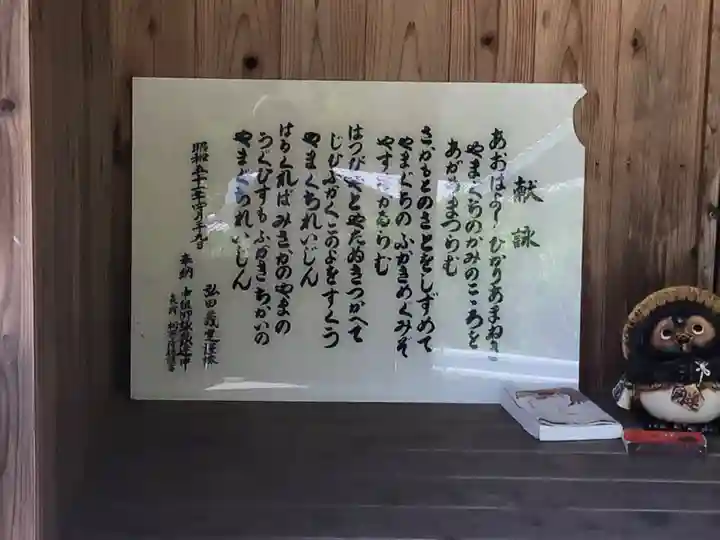 献詠
あおはよ ひかりあまねき
やまぐちのかみのこころを
あがめまつらむ
さかもとのさとをしずめて
やまぐちのふかきめぐみぞ
やすらむ
はつびとやたぬきつかへて
じひふかくこのよをすくう
やまぐちれいじん
はるくればみさかのやまの
うぐひすもふかきちかいの
やまぐちれいじん
昭和五十 年四月
奉納
弘田義